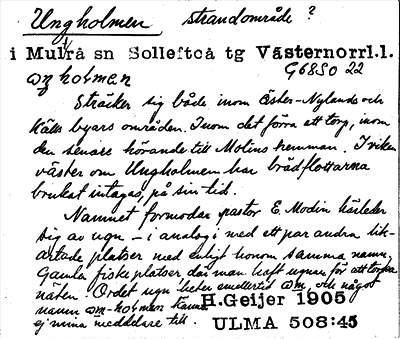 Ungholmen strandområde?
i Multrå sn Sollefteå tg Västernorrl.l.
holmen G6850 22
Sträcker sig både inom Öster-Nylands och
byars områden. Inom det förra ett torp, inom
den senare hörande till Molins hemman. I viken
väster om Ungholmen har brädflottarna
brukat intagas, på sin tid.
Namnet förmodar pastor E. Modin härleder
sig av ugn – i analogi med ett par andra lik-
artade platser med enligt honom samma namn,
Gamla fiskeplatser där man haft ugnar för att torka
näten. Ordet ugn heter emellertid och något
namn -holmen känna H. Geijer 1905
ej mina meddelare till. ULMA 508:45